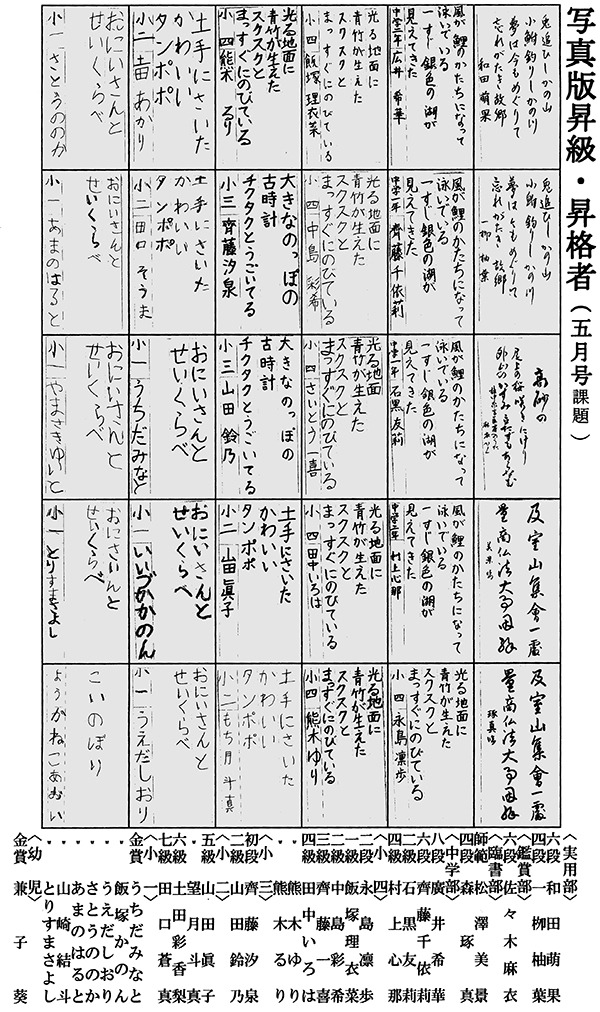 写真版昇級・昇格者（五月号課題）
兎追ひしかの山
小鮒釣りしかの川
夢は今もめぐりて
忘れがたき故郷
和田萌果
風が鯉のかたちになって
泳いでいる
一すじ銀色の湖が
見えてきた
中学二年 広井希華
光る地面に
青竹が生えた
スクスクと
まっすぐにのびている
小四 飯塚理衣菜
光る地面に
青竹が生えた
スクスクと
まっすぐにのびている
小四 熊木るり
土手にさいた
かわいい
タンポポ
小二 土田あかり
おにいさんと
せいくらべ
小一 さとうののか
兎追ひしかの山
小鮒釣りしかの川
夢は今もめぐりて
忘れがたき故郷
一柳柚葉
風が鯉のかたちになって
泳いでいる
一すじ銀色の湖が
見えてきた
中学一年 齊藤千依莉
光る地面に
青竹が生えた
スクスクと
まっすぐにのびている
小四 中島彩希
大きなのっぽの
古時計
チクタクとうごいてる
小三 齊藤汐泉
土手にさいた
かわいい
タンポポ
小二 田口そうま
おにいさんと
せいくらべ
小一 あまのはると
高砂の
風が鯉のかたちになって
泳いでいる
一すじ銀色の湖が
見えてきた
中学一年 石黒友莉
光る地面に
青竹が生えた
スクスクと
まっすぐにのびている
小四 さいとう一喜
大きなのっぽの
古時計
チクタクとうごいてる
小三 山田鈴乃
おにいさんと
せいくらべ
小一 うちだみなと
おにいさんと
せいくらべ
小一 やまさきゆいと
及室山集會一處
量商仏法大事因縁
美景臨
風が鯉のかたちになって
泳いでいる
一すじ銀色の湖が
見えてきた
中学二年 村上心那
光る地面に
青竹が生えた
スクスクと
まっすぐにのびている
小四 田中いろは
土手にさいた
かわいい
タンポポ
小二 山田眞子
おにいさんと
せいくらべ
小一 いいづかかのん
おにいさんと
せいくらべ
小一 とりすまさよし
及室山集會一處
量商仏法大事因縁
琢真臨
光る地面に
青竹が生えた
スクスクと
まっすぐにのびている
小四 永島凛歩
光る地面に
青竹が生えた
スクスクと
まっすぐにのびている
小四 熊木ゆり
土手にさいた
かわいい
タンポポ
小二 もち月斗真
おにいさんと
せいくらべ
小一 うえだしおり
こいのぼり
ようかねこあおい
〈実用部〉
六段 和田萌果
四段 一栁柚葉
〈鑑賞部〉
六段 佐々木麻衣
〈臨書部〉
師範 松澤美景
四段 森琢真
〈中学部〉
八段 廣井希華
六段 齊藤千依莉
二段 石黒友莉
四級 村上心那
〈小四〉
二段 永島凛歩
一級 飯塚理衣菜
二級 中島彩希
三級 齊藤一喜
四級 田中いろは
〃 熊木ゆり
〃 熊木るり
〈小三〉
初段 齊藤汐泉
二級 山田鈴乃
〈小二〉
五級 山田眞子
〃 望月斗真
六級 土田彩香梨
七級 田口蒼真
〈小一〉
金賞 うちだみなと
〃 飯塚かのん
〃 うえだしおり
〃 さとうののか
〃 あまのはると
〃 山崎結斗
〃 とりすまさよし
〈幼児〉
金賞 兼子葵